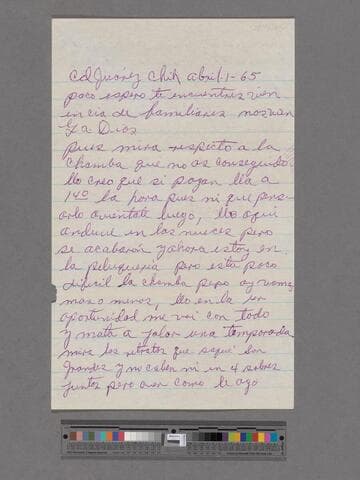 Cd Juárez Chih abril-1-65
poco espero te encuentres vien
en cia de familiares nosvan
Gs a Dios
pues mira respecto a la
chamba que no as conseguido
llo creo que si pagan lla a
140 la hora pues ni que pens-
arlo avientate luego, llo aqui
anduve en las nueces pero
se acabaron y ahora estoy en
la peluqueria pero esta poco
dificil la chamba pero ay vamos
mas o menos, llo en la 1er
oportunidad me voi con todo
y mata a jalar una temporada
mira los retratos que saqué son
grandes y no caben ni en 4 sobres
juntos pero aver como le ago